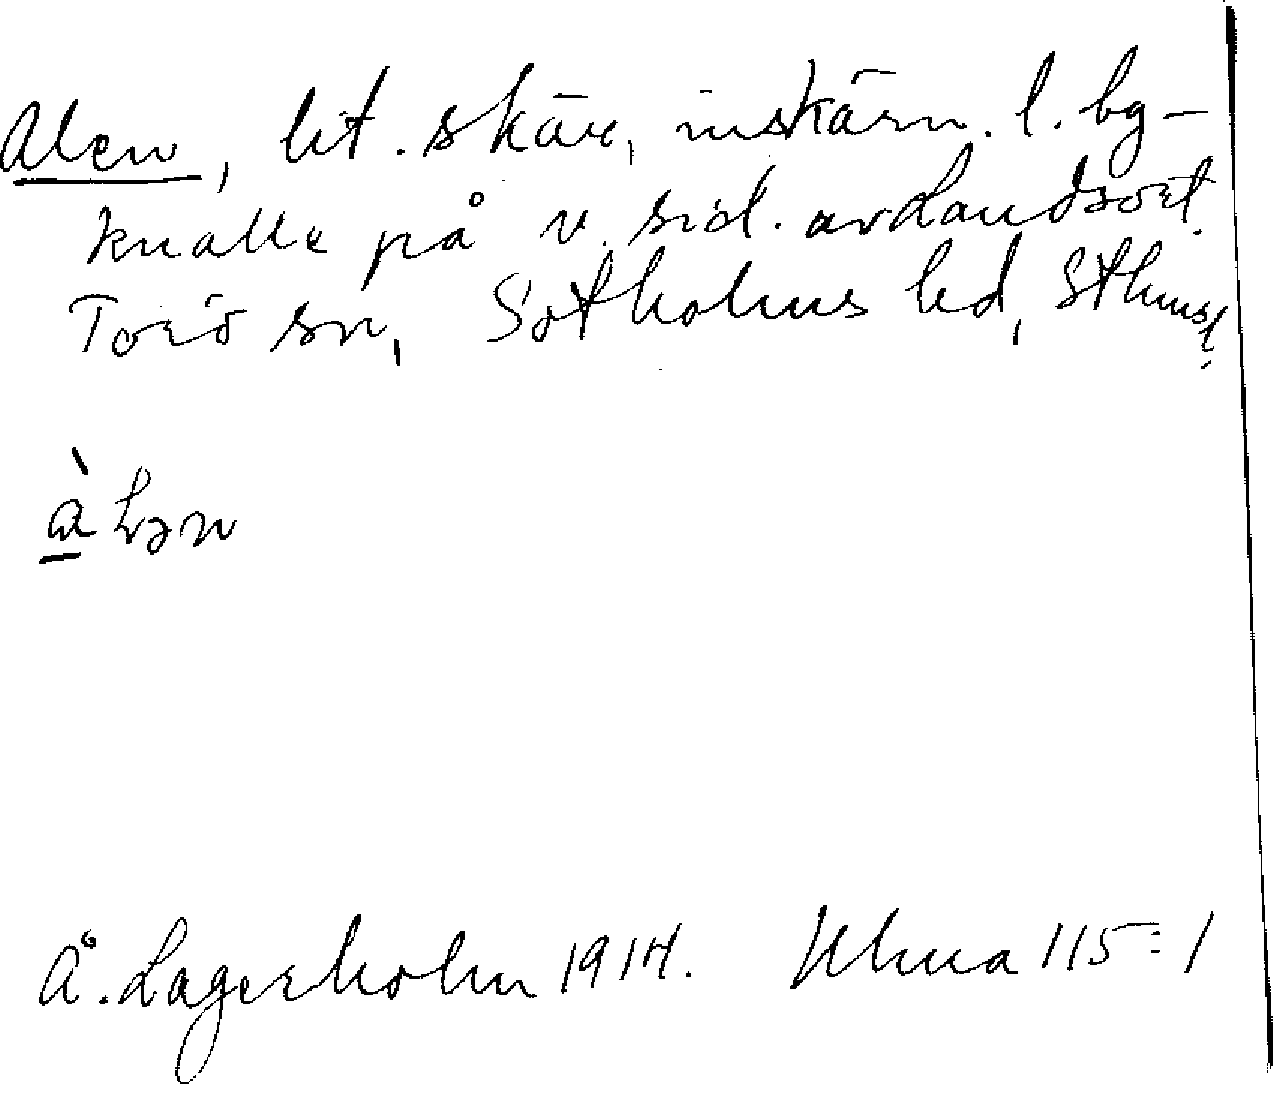 Alen, lit. skär, inskärn. l. bg-
knalle på v. sid. av Landsort.
Torö sn, Sotholms hd, Sthms l.
àlən
Å. Lagerholm 1914. Ulma 115:1